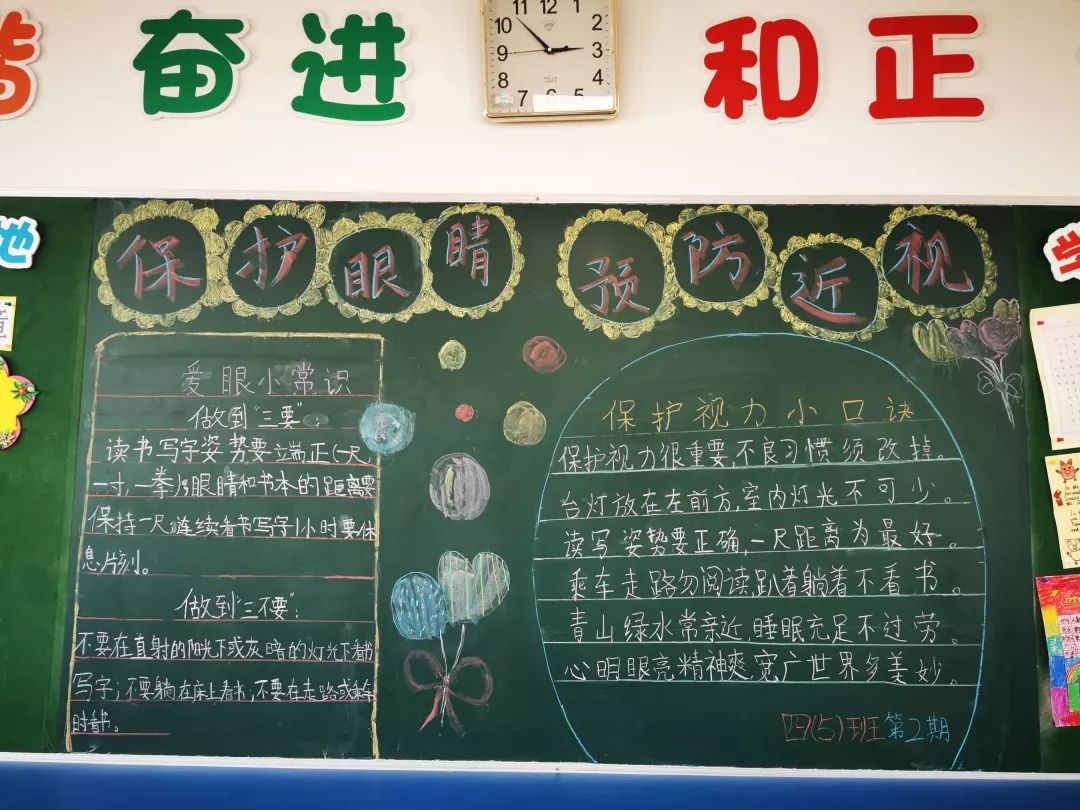 奋进
11 12 1
10 2
9 3
8 4
7 6 5
和正
地
学
保护眼睛
预防近视
爱眼小常识
做到“三要”:
读书写字姿势要端正(一尺,
一寸,一拳),眼睛和书本的距离要
保持一尺;连续看书写字1小时要休
息片刻。
做到“三不要”:
不要在直射的阳光下或灰暗的灯光下看书
写字;不要躺在床上看书;不要在走路或乘车
时看书。
保护视力小口诀
保护视力很重要,不良习惯须改掉。
台灯放在左前方,室内灯光不可少。
读写姿势要正确,一尺距离为最好。
乘车走路勿阅读,趴着躺着不看书。
青山绿水常亲近,睡眠充足不过劳。
心明眼亮精神爽,宽广世界多美妙。
四(5)班第2期